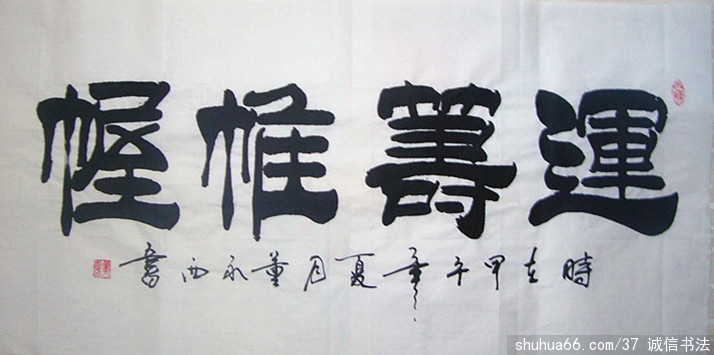 運籌帷幄
時在甲午年夏月董永西書
shuhua66.com/37 诚信书法